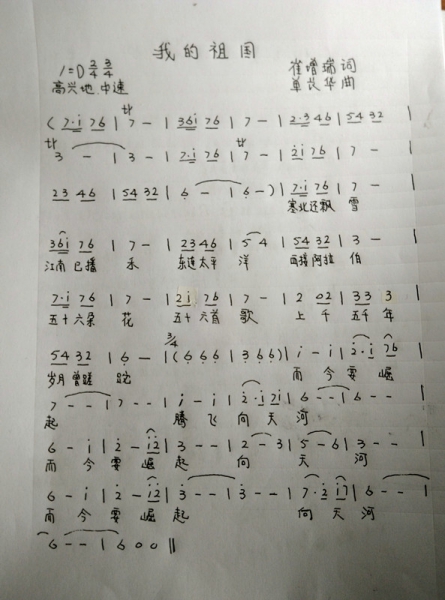 我的祖国
1=D 2/4 3/4 崔增瑞词
高兴地 中速 单长华曲
( 7·i 76 | 7 - | 36i 76 | 7 - | 2·3 46 | 54 32 |
3 - | 3 - | 7·i 76 | 7 - | 2i 76 | 7 - |
23 46 | 54 32 | 6 - | 6 - ) | 7·i 76 | 7 - |
塞北还飘 雪
36i 76 | 7 - | 23 46 | 5 4 | 54 32 | 3 - |
江南已播 禾 东连太平 洋 西接阿拉 伯
7·i 76 | 7 - | 2i 76 | 7 - | 2 02 | 33 3 |
五十六朵 花 五十六首 歌 上千 五千年
54 32 | 6 - | 3/4 ( 6 6 6 | 3 6 6 ) | i - i | 2·i 76 |
岁月曾蹉 跎 而今要崛
7 - - | 7 - - | i - i | 2·i 7i | 6 - - | 6 - - |
起 腾飞向天河
6 - i | 2 - i2 | 3 - - | 2 - 3 | 5 - 6 | 3 - - |
而今要崛起 向 天 河
6 - i | 2 - i2 | 3 - - | 3 - - | 7·2 i7 | 6 - - |
而今要崛起 向天河
6 - - | 6 0 0 ‖